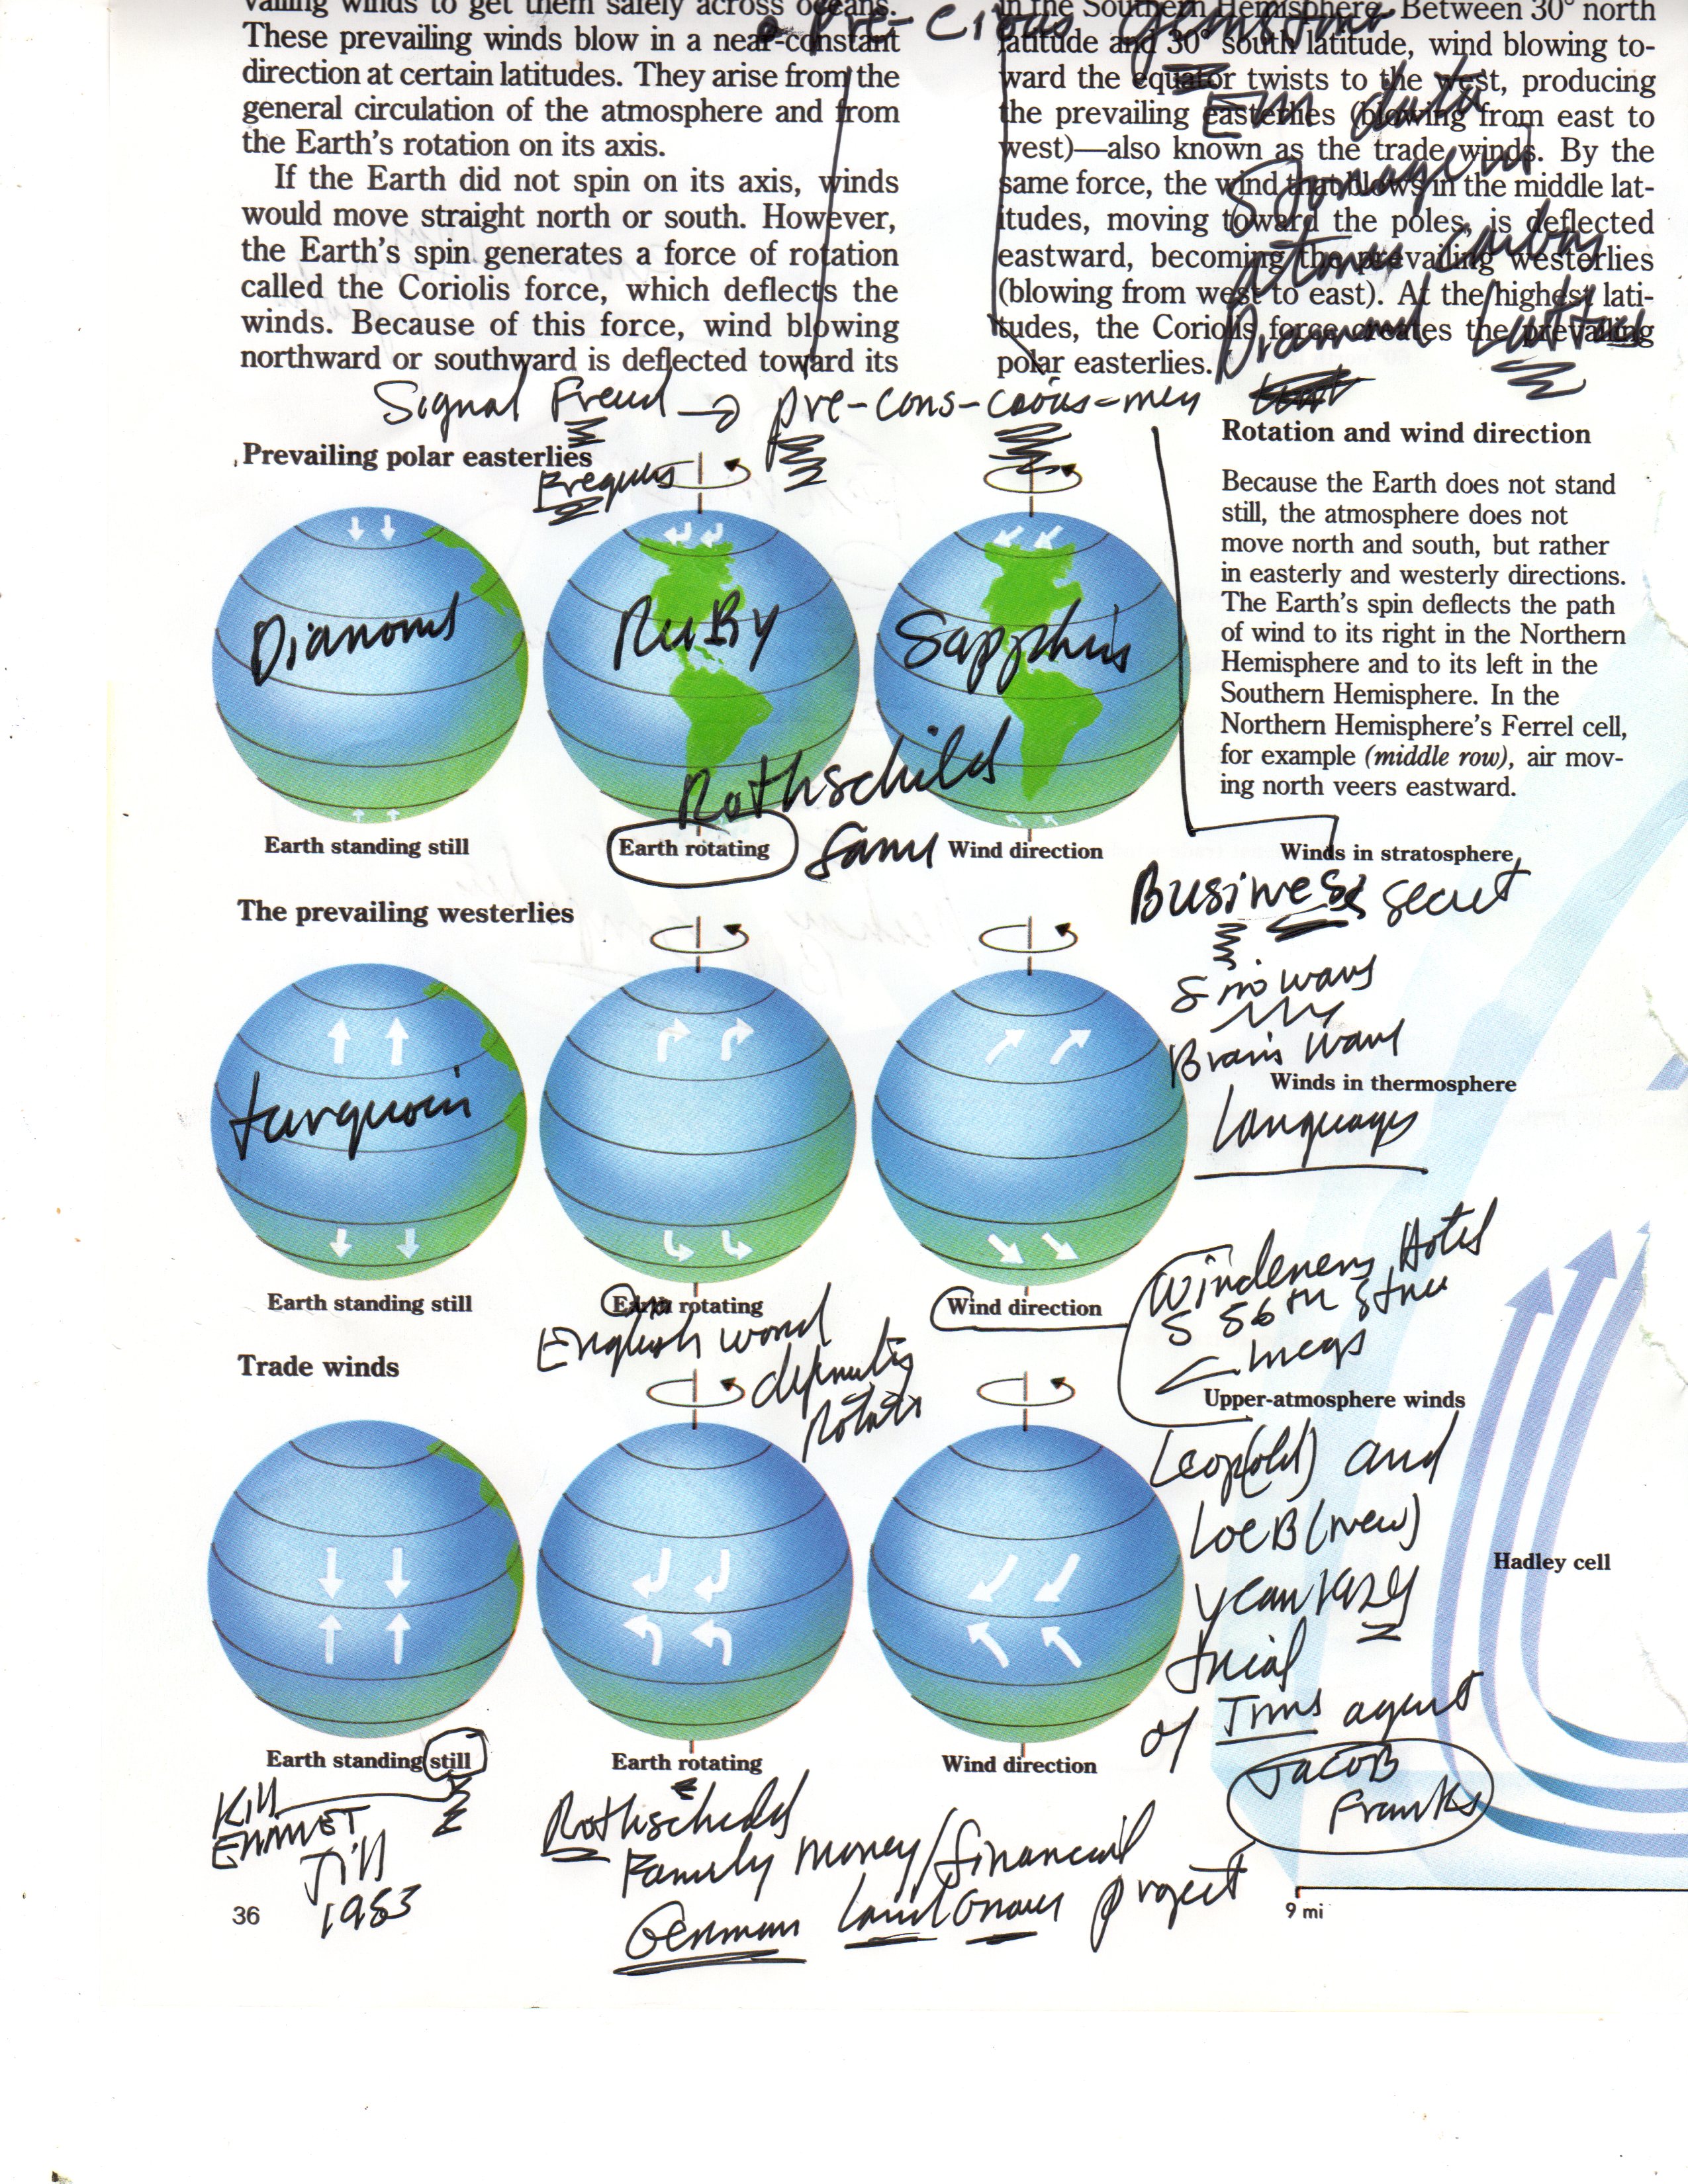 vailing winds to get them safely across oceans.
These prevailing winds blow in a near-constant
direction at certain latitudes. They arise from the
general circulation of the atmosphere and from
the Earth's rotation on its axis.
If the Earth did not spin on its axis, winds
would move straight north or south. However,
the Earth's spin generates a force of rotation
called the Coriolis force, which deflects the
winds. Because of this force, wind blowing
northward or southward is deflected toward its
pre-cious gemstone
in the Southern Hemisphere. Between 30° north
latitude and 30° south latitude, wind blowing to-
ward the equator twists to the west, producing
the prevailing easterlies (blowing from east to
west)—also known as the trade winds. By the
same force, the wind that blows in the middle lat-
itudes, moving toward the poles, is deflected
eastward, becoming the prevailing westerlies
(blowing from west to east). At the highest lati-
tudes, the Coriolis force creates the prevailing
polar easterlies.
data
Signal Freud → pre-cons-cious-men
Prevailing polar easterlies
Diamond
Ruby
Sapphire
Rothschild
Earth standing still
Earth rotating
Wind direction
Rotation and wind direction
Because the Earth does not stand
still, the atmosphere does not
move north and south, but rather
in easterly and westerly directions.
The Earth's spin deflects the path
of wind to its right in the Northern
Hemisphere and to its left in the
Southern Hemisphere. In the
Northern Hemisphere's Ferrel cell,
for example (middle row), air mov-
ing north veers eastward.
Winds in stratosphere
Business secret
Brain wave
Winds in thermosphere
Languages
The prevailing westerlies
turquois
Earth standing still
Earth rotating
Wind direction
English word
rotate
Hotel
56th Street
Upper-atmosphere winds
Leop(old) and
LoeB(new)
year
trial
of agent
JacoB
Franks
Hadley cell
Trade winds
Earth standing still
Earth rotating
Wind direction
Kill
EMMET
Till
1953
Rothschild
Family money/financial
German project
36
9 mi